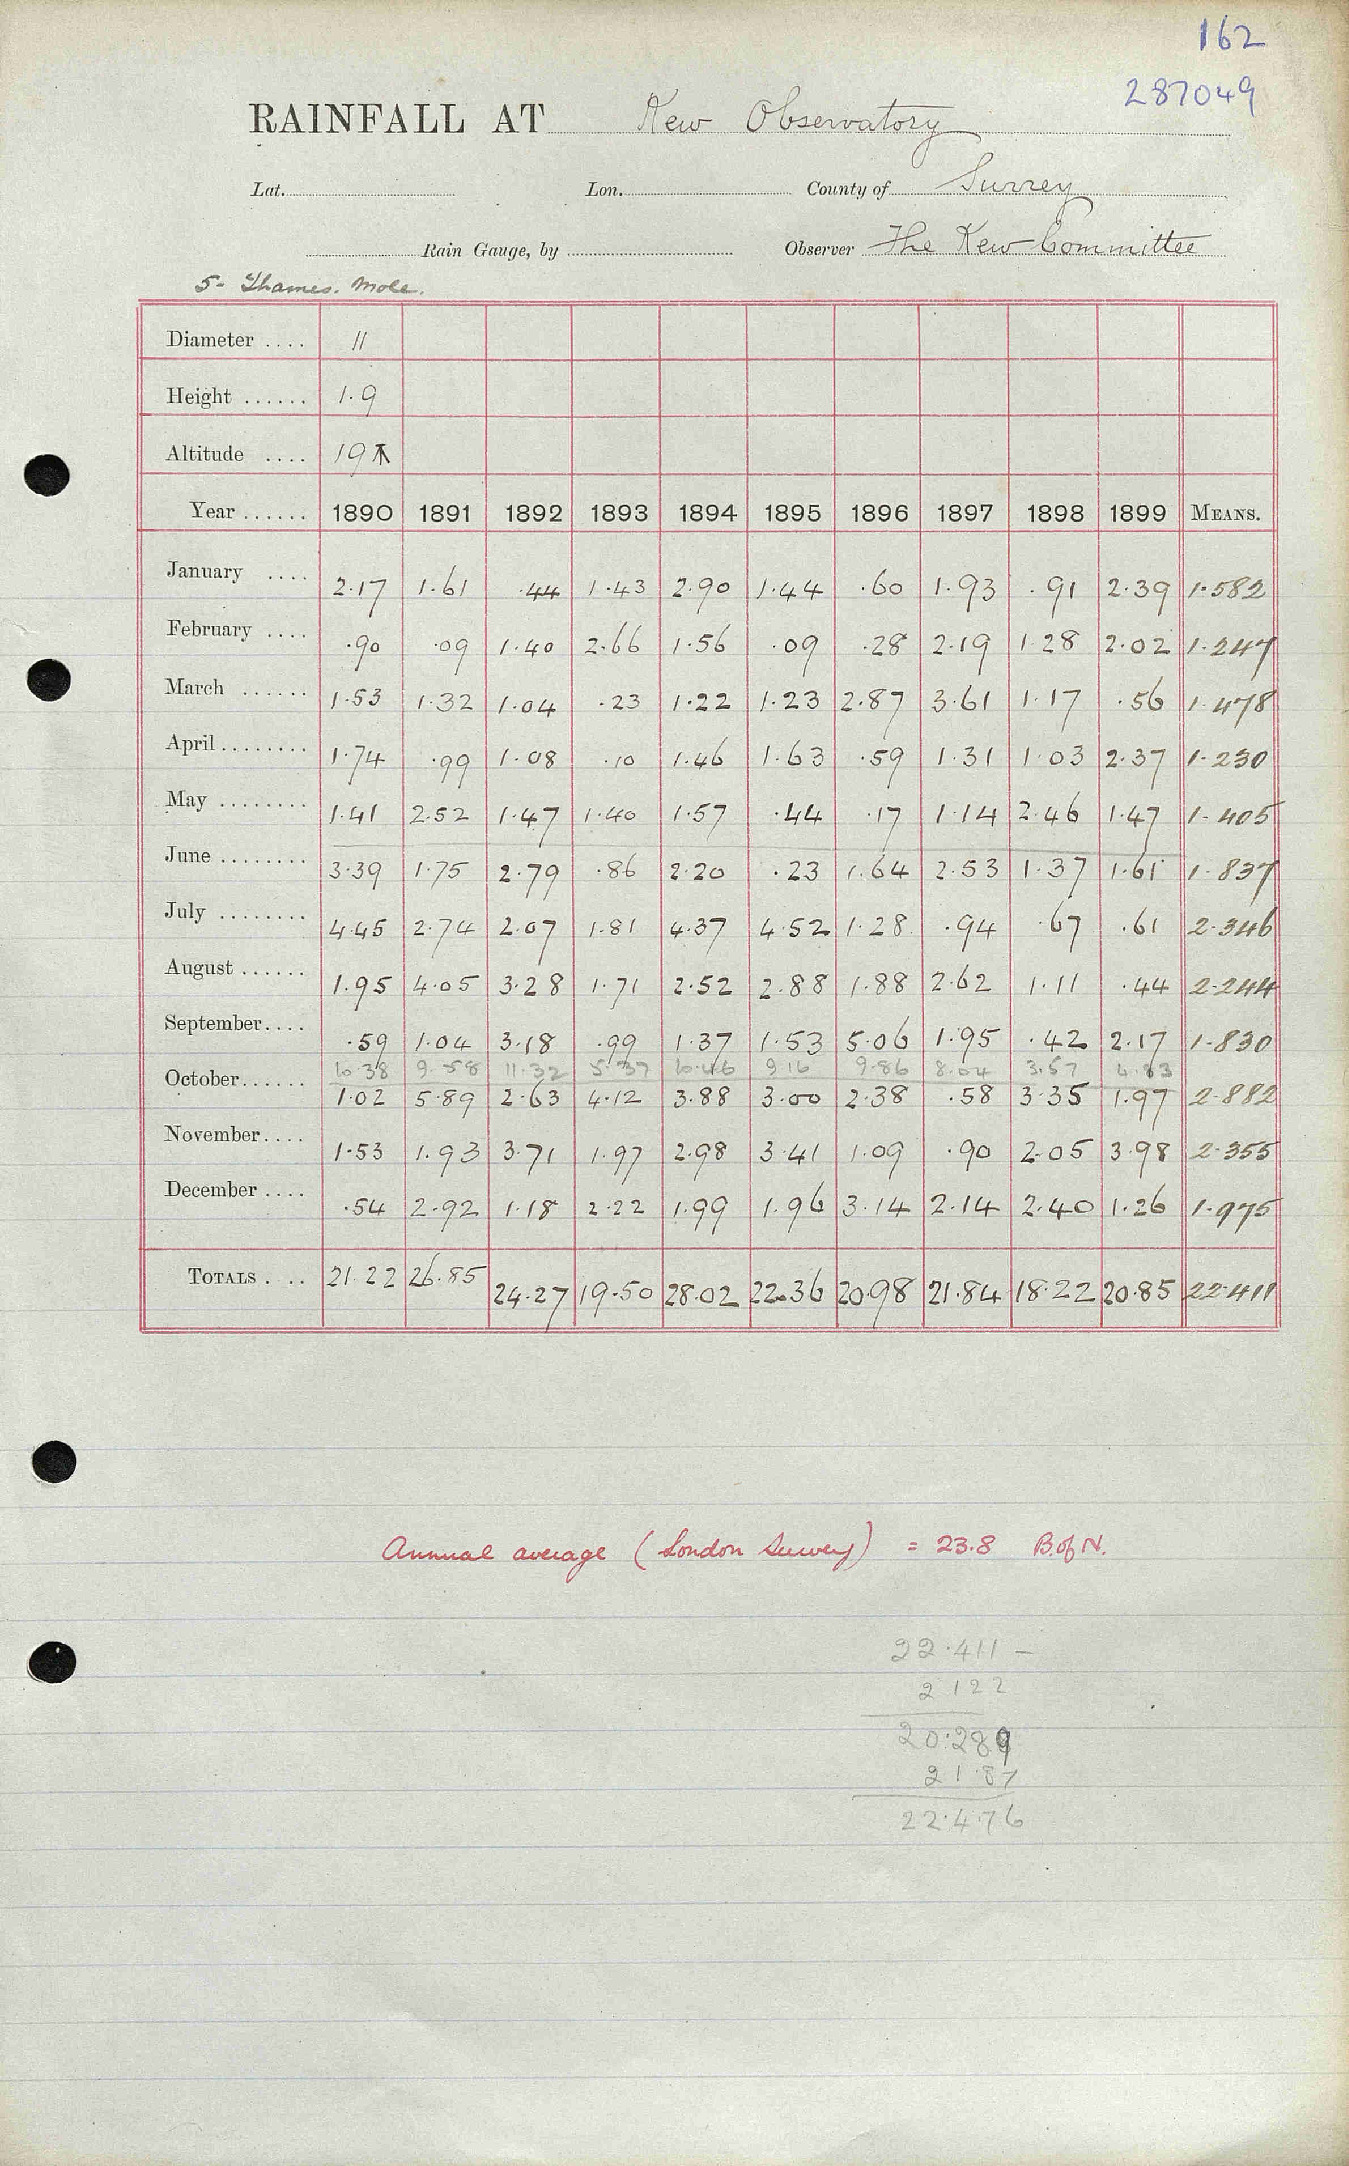 162
287049
RAINFALL AT Kew Observatory
Lat. Lon. County of Surrey
Rain Gauge, by Observer The Kew Committee
5- Thames. Mole.
Diameter .... 11
Height ...... 1.9
Altitude .... 19
Year ...... 1890 1891 1892 1893 1894 1895 1896 1897 1898 1899 MEANS.
January .... 2.17 1.61 .44 1.43 2.90 1.44 .60 1.93 .91 2.39 1.582
February .... .90 .09 1.40 2.66 1.56 .09 .28 2.19 1.28 2.02 1.247
March ...... 1.53 1.32 1.04 .23 1.22 1.23 2.87 3.61 1.17 .56 1.478
April ........ 1.74 .99 1.08 .10 1.46 1.63 .59 1.31 1.03 2.37 1.230
May ........ 1.41 2.52 1.47 1.40 1.57 .44 .17 1.14 2.46 1.47 1.405
June ........ 3.39 1.75 2.79 .86 2.20 .23 1.64 2.53 1.37 1.61 1.837
July ........ 4.45 2.74 2.07 1.81 4.37 4.52 1.28 .94 .67 .61 2.346
August ...... 1.95 4.05 3.28 1.71 2.52 2.88 1.88 2.62 1.11 .44 2.244
September.... .59 1.04 3.18 .99 1.37 1.53 5.06 1.95 .42 2.17 1.830
10.38 9.58 11.32 5.37 10.46 9.16 9.86 8.04 3.57 4.83
October...... 1.02 5.89 2.63 4.12 3.88 3.00 2.38 .58 3.35 1.97 2.882
November.... 1.53 1.93 3.71 1.97 2.98 3.41 1.09 .90 2.05 3.98 2.355
December .... .54 2.92 1.18 2.22 1.99 1.96 3.14 2.14 2.40 1.26 1.975
TOTALS . .. 21.22 26.85 24.27 19.50 28.02 22.36 20.98 21.84 18.22 20.85 22.411
Annual average (London Survey) = 23.8 B.of N.
22.411 –
2 122
20.289
21.87
22.476